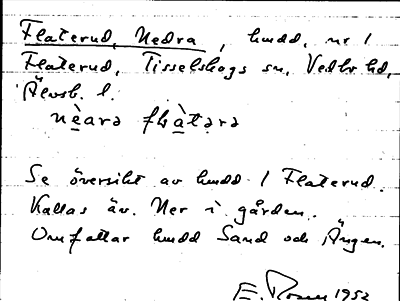 Flaterud, Nedra, hmdd, nr 1
Flaterud, Tisselskogs sn, Vedbo hd,
Älvsb. l.
nèarə
Se översikt av hmdd / Flaterud.
Kallas äv. Ner i gården.
Omfattar hmdd Sand och Ängen.
E. Rosen 1952